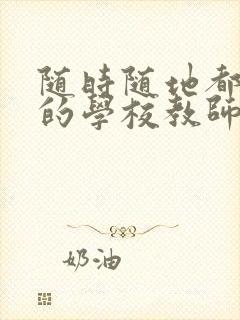 随時随地都
的學校教師
奶油